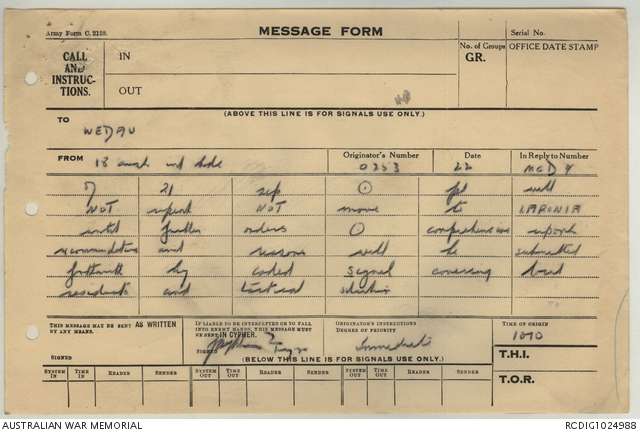 Army Form C. 2128.
MESSAGE FORM
Serial No.
CALL AND INSTRUCTIONS.
IN
OUT
No. of Groups
GR.
OFFICE DATE STAMP
(ABOVE THIS LINE IS FOR SIGNALS USE ONLY.)
TO
WEDAU
FROM 18 Aust inf bde
Originator's Number 0233
Date 22
In Reply to Number
7 21 sep pl will
NOT repeat NOT move to
until further orders comprehensive report
recommendations and reasons will be submitted
forthwith by coded signal covering
and tactical
THIS MESSAGE MAY BE SENT AS WRITTEN BY ANY MEANS.
SIGNED
IF LIABLE TO BE INTERCEPTED OR TO FALL INTO ENEMY HANDS, THIS MESSAGE MUST BE SENT IN CYPHER.
SIGNED
ORIGINATOR'S INSTRUCTIONS DEGREE OF PRIORITY
Immediate
TIME OF ORIGIN
(BELOW THIS LINE IS FOR SIGNALS USE ONLY.)
T.H.I.
T.O.R.
SYSTEM IN TIME IN READER SENDER SYSTEM OUT TIME OUT READER SENDER SYSTEM OUT TIME OUT READER SENDER
AUSTRALIAN WAR MEMORIAL
RCDIG1024988